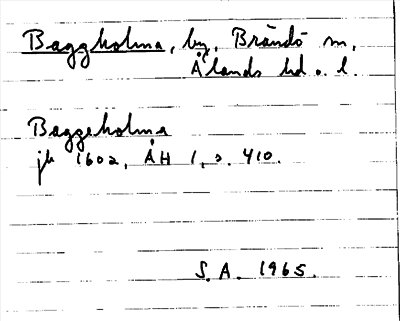 Baggholma, by, Brändö sn,
Ålands hd o. l.
Baggeholma
jb 1602, ÅH 1, s. 410.
S.A. 1965.